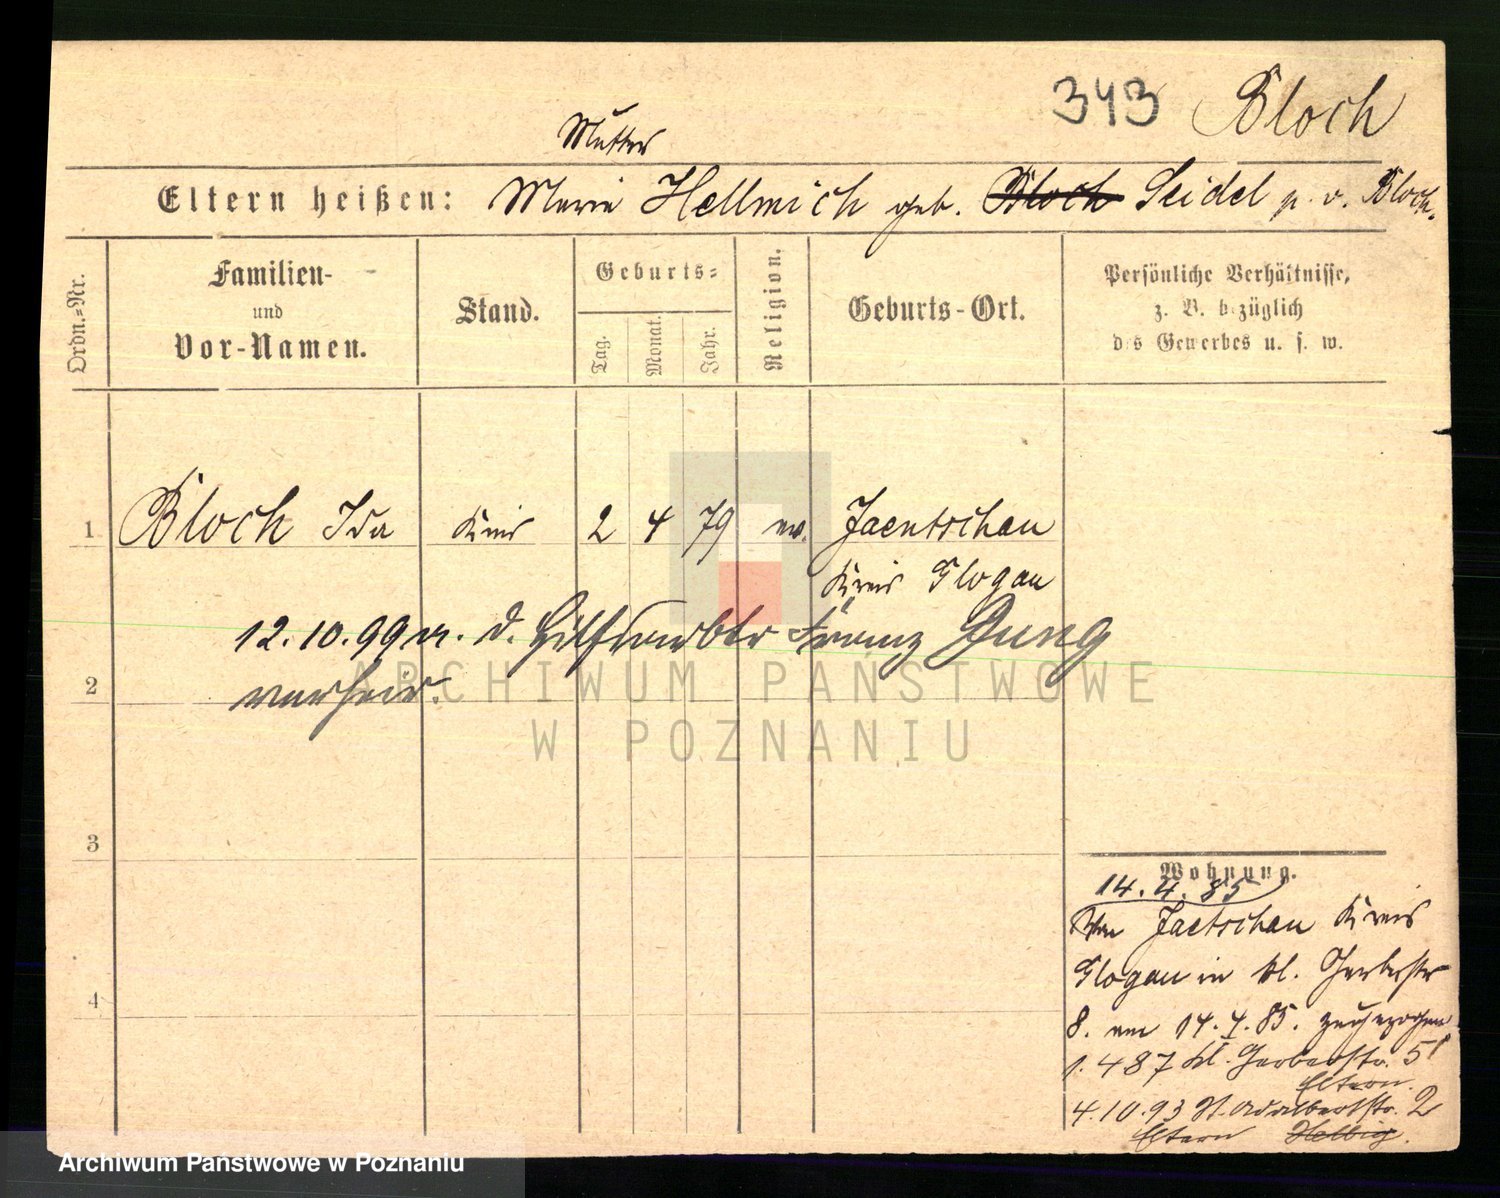 343 Bloch
Mutter
Eltern heißen: Marie Hellmich geb. Bloch Seidel p. v. Bloch.
Ordn.=Nr.
Familien-
und
Vor-Namen.
Stand.
Geburts=
Tag.
Monat.
Jahr.
Religion.
Geburts-Ort.
Persönliche Verhältnisse,
z. B. bezüglich
des Gewerbes u. s. w.
1 Bloch Ida 2 4 79 ev. Jaentschau
Kreis Glogau
12.10.99 m. d. Hilfsarbtr Franz Jung
2 verheir.
3
4
Wohnung.
14.4.85
Von Jaetschau Kreis
Glogau in kl. Gerberstr
8. am 14.4.85. zugezogen
1.4 87 kl. Gerberstr. 5
Eltern.
4.10.93 St. Adalbertstr. 2
Eltern Hellmig.
ARCHIWUM PAŃSTWOWE
W POZNANIU
Archiwum Państwowe w Poznaniu